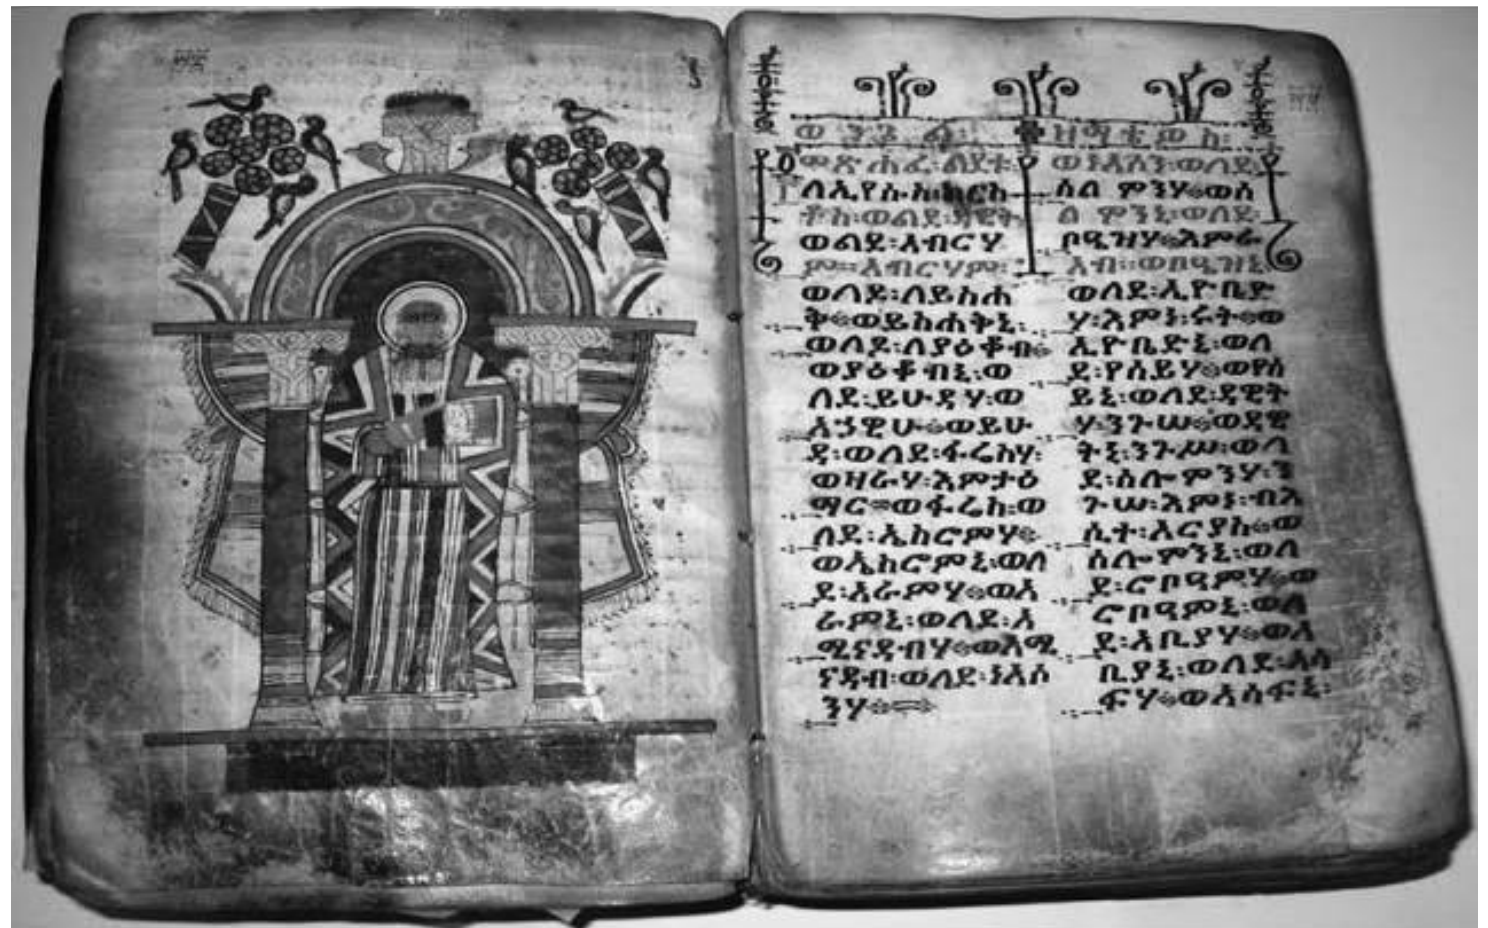 ወንጌል፡ ዘማቴዎስ፡
መጽሐፈ፡ ልደቱ፡
ለኢየሱስ፡ ክርስ
ቶስ፡ ወልደ፡ ዳዊት
ወልደ፡ አብርሃ
ም። አብርሃም፡
ወለደ፡ ለይስሐ
ቅ። ወይስሐቅኒ፡
ወለደ፡ ለያዕቆብ።
ወያዕቆብኒ፡ ወ
ለደ፡ ይሁዳሃ፡ ወ
አኃዊሁ። ወይሁ
ዳ፡ ወለደ፡ ፋሬስሃ፡
ወዛራሃ፡ እምታዕ
ማር። ወፋሬስ፡ ወ
ለደ፡ ኤስሮምሃ።
ወኤስሮምኒ፡ ወለ
ደ፡ አራምሃ። ወአ
ራምኒ፡ ወለደ፡ አ
ሚናዳብሃ። ወአሚ
ናዳብ፡ ወለደ፡ ነአሶ
ንሃ።
ወነአሶን፡ ወለደ፡
ሰለምንሃ። ወሰ
ለምንኒ፡ ወለደ፡
ቦዔዝሃ። እምራ
አብ። ወቦዔዝኒ
ወለደ፡ ኢዮቤድ
ሃ፡ እምነ፡ ሩት። ወ
ኢዮቤድኒ፡ ወለ
ደ፡ የሰይሃ። ወየሰ
ይኒ፡ ወለደ፡ ዳዊት
ሃ፡ ንጉሠ። ወዳዊ
ትኒ፡ ንጉሥ፡ ወለ
ደ፡ ሰሎምንሃ፡ ን
ጉሠ፡ እምነ፡ ብእ
ሲተ፡ ኦርያስ። ወ
ሰሎምንኒ፡ ወለ
ደ፡ ሮቦዓምሃ። ወ
ሮቦዓምኒ፡ ወለ
ደ፡ አቢያሃ። ወአ
ቢያኒ፡ ወለደ፡ አሳ
ፍሃ። ወአሳፍኒ፡